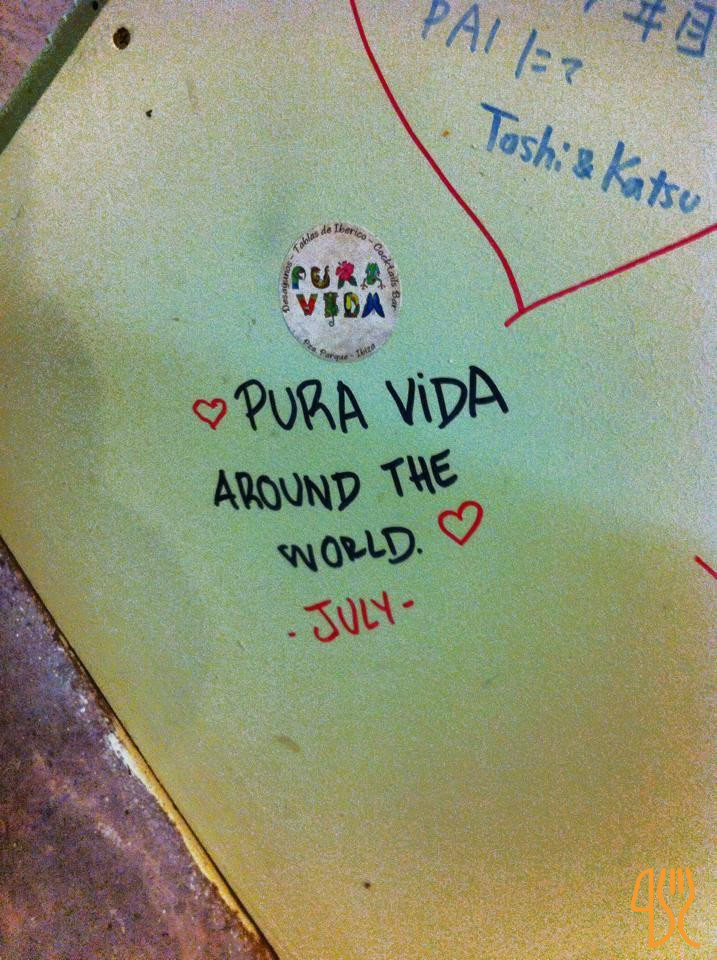 PAI にて
Toshi & Katsu
Desayunos - Tablas de Iberico - Cocktails Bar
PURA
VIDA
Pza. Parque - Ibiza
PURA ViDA
AROUND THE
WORLD.
- JULY -